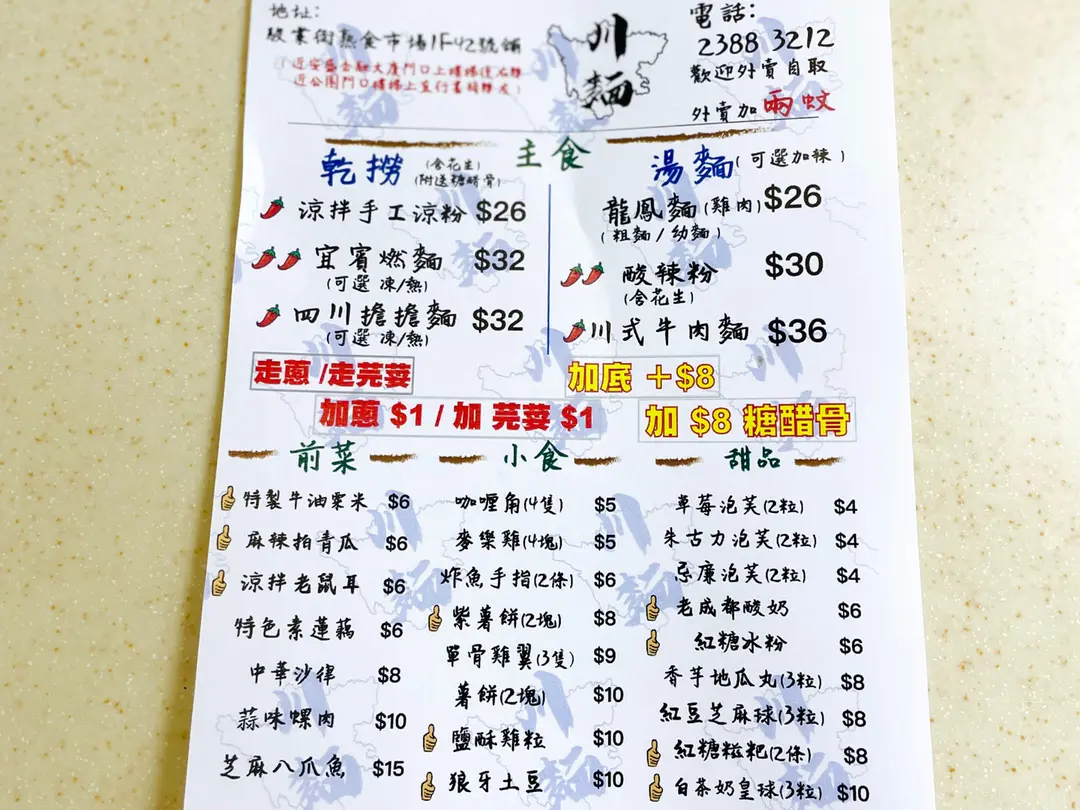 地址：
駿業街熟食市場1F42號舖
川麵
電話：
2388 3212
歡迎外賣自取
外賣加兩蚊
主食
乾撈
(含花生)
(附送糖醋骨)
涼拌手工涼粉 $26
宜賓燃麵 $32
(可選 凍/熱)
四川擔擔麵 $32
(可選 凍/熱)
湯麵 (可選加辣)
龍鳳麵 (雞肉) $26
(粗麵 / 幼麵)
酸辣粉 $30
(含花生)
川式牛肉麵 $36
走蔥 /走芫荽
加底 ＋$8
加蔥 $1 / 加 芫荽 $1
加 $8 糖醋骨
前菜
特製牛油粟米 $6
麻辣拍青瓜 $6
涼拌老鼠耳 $6
特色素蓮藕 $6
中華沙律 $8
蒜味螺肉 $10
芝麻八爪魚 $15
小食
咖喱角(4隻) $5
麥樂雞(4塊) $5
炸魚手指(2條) $6
紫薯餅(2塊) $8
單骨雞翼(3隻) $9
薯餅(2塊) $10
鹽酥雞粒 $10
狼牙土豆 $10
甜品
草莓泡芙(2粒) $4
朱古力泡芙(2粒) $4
忌廉泡芙(2粒) $4
老成都酸奶 $6
紅糖冰粉 $6
香芋地瓜丸(3粒) $8
紅豆芝麻球(3粒) $8
紅糖糍粑(2條) $8
白茶奶皇球(3粒) $10